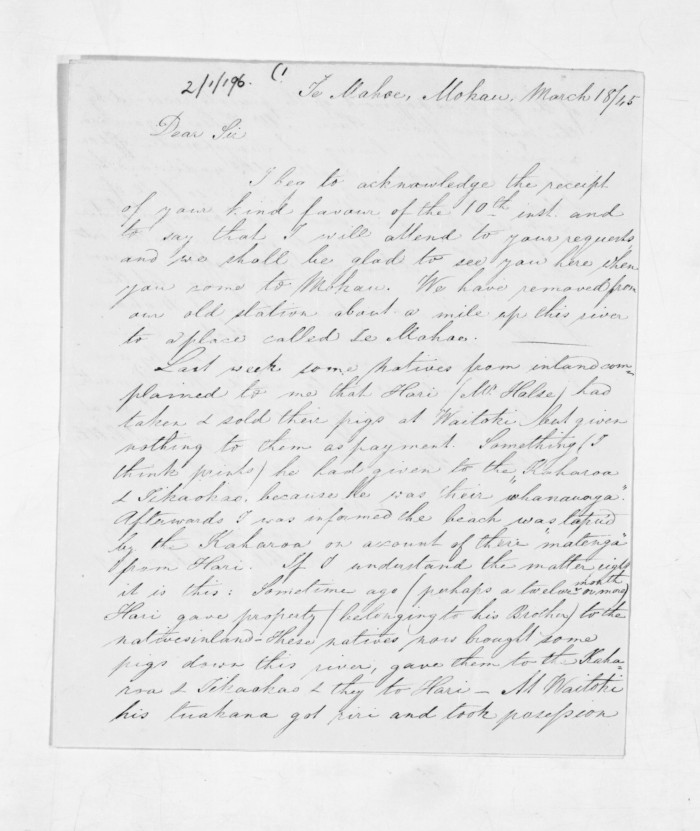 2/1/196. C!
Te Mahoe, Mokau, March 18/45
Dear Sir
I beg to acknowledge the receipt
of your kind favour of the 10th inst. and
to say that I will attend to your requests
and we shall be glad to see you here when
you come to Mokau. We have removed from
our old station about a mile up this river
to a place called Te Mahoe.
Last week some natives from inland com-
plained to me that Hari (Mr. Halse) had
taken & sold their pigs at Waitoki but given
nothing to them as payment. Something (I
think prints) he had given to the Kaharoa
& Tikaokao, because he was their "whanaunga".
Afterwards I was informed the beach was tapu'd
by the Kaharoa on account of there "matenga"
from Hari. If I understand the matter right
it is this: Sometime ago (perhaps a twelve month or more)
Hari gave property (belonging to his Brother) to the
natives inland - These natives now brought some
pigs down this river, gave them to the Kaha-
roa & Tikaokao & they to Hari - At Waitoki
his tuakana got riri and took posession